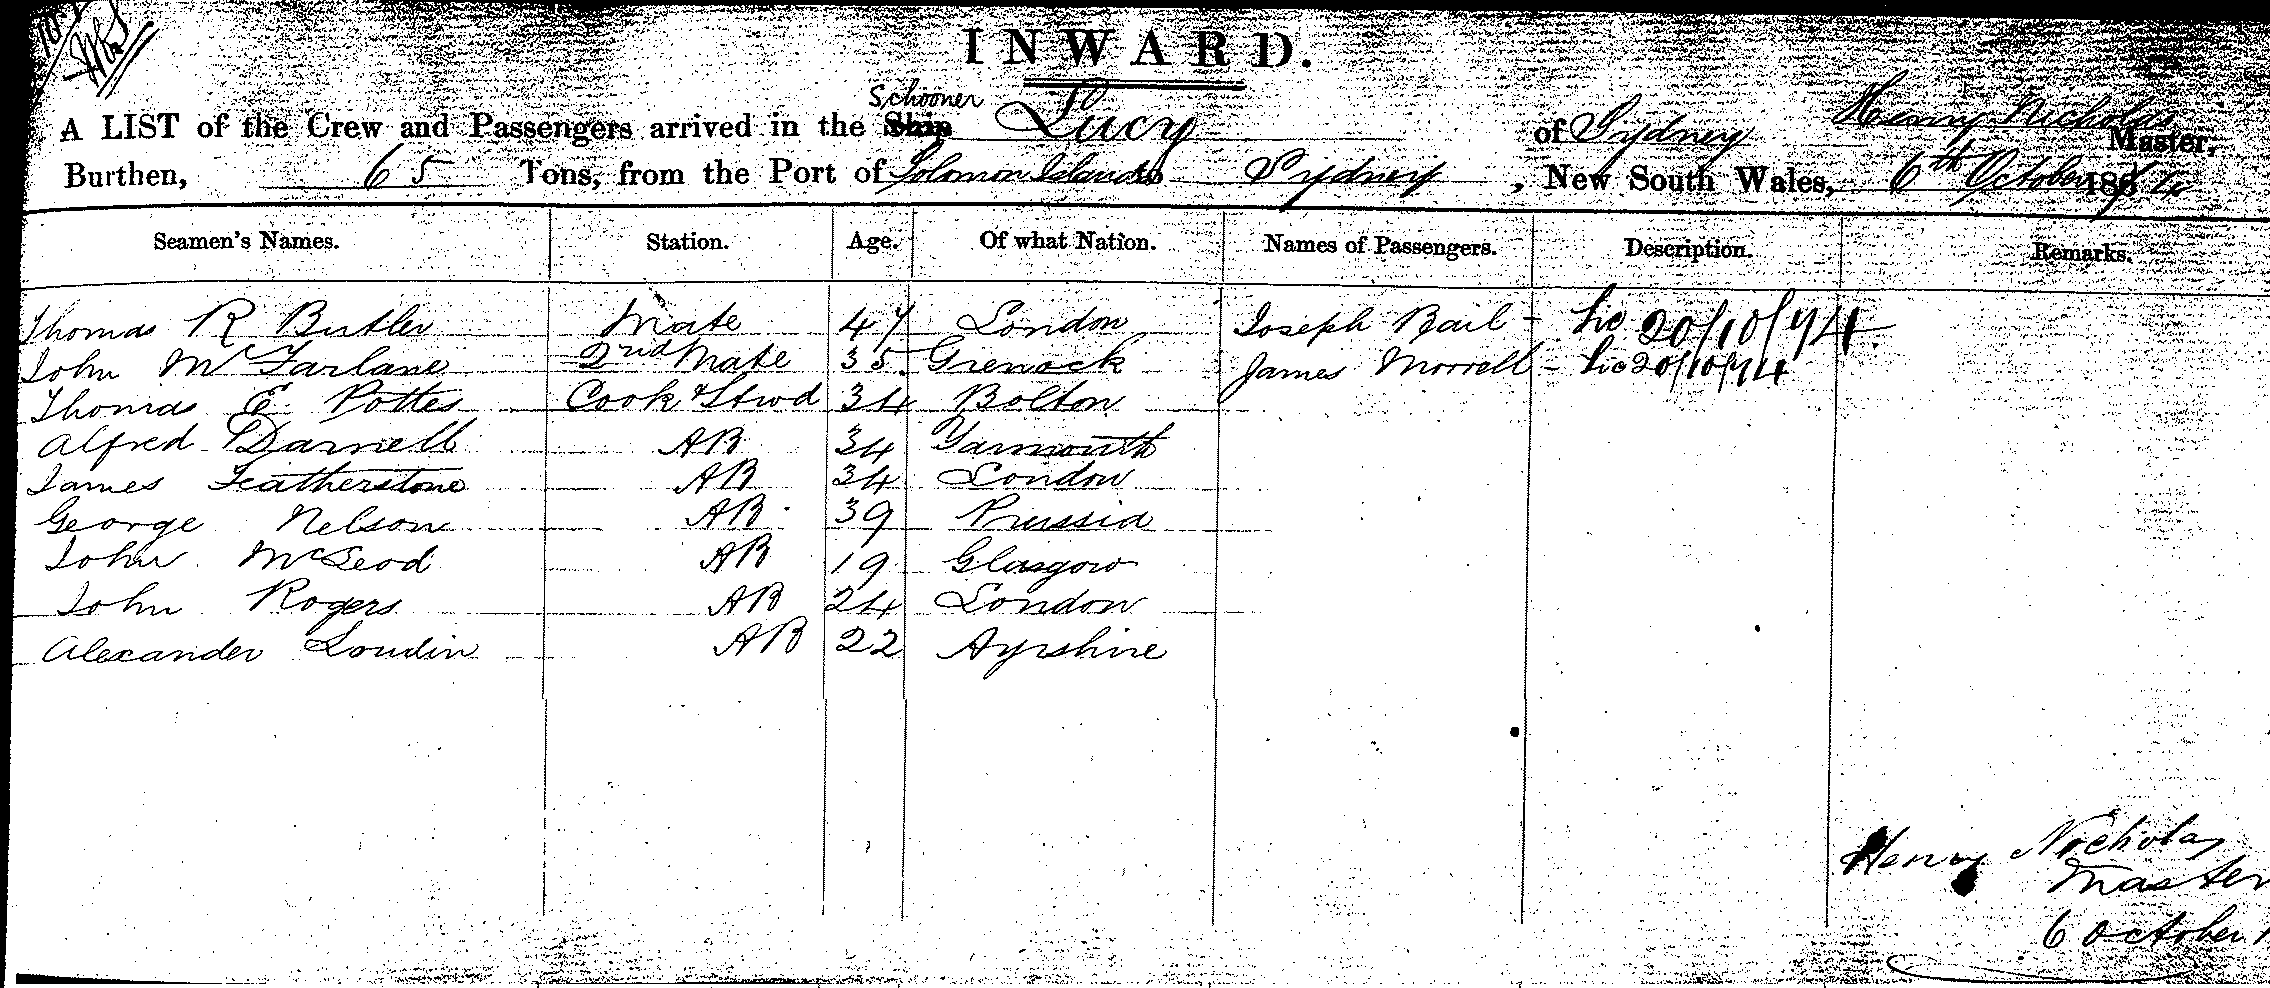 INWARD.
Schooner
A LIST of the Crew and Passengers arrived in the Ship Lucy of Sydney Henry Nicholas Master,
Burthen, 65 Tons, from the Port of Solomon Islands to Sydney, New South Wales, 6th October 187
Seamen's Names. Station. Age. Of what Nation. Names of Passengers. Description. Remarks.
Thomas R Butler Mate 47 London Joseph Bail - 20/10/74
John McFarlane 2nd Mate 35 Grenock James Morrell - 20/10/74
Thomas E. Pottes Cook & Stwd 34 Bolton
Alfred Darnell AB 34 Yarmouth
James Featherstone AB 34 London
George Nelson AB 39 Prussia
John McLeod AB 19 Glasgow
John Rogers AB 24 London
Alexander Loudin AB 22 Ayrshire
Henry Nicholas
Master
6 October 1